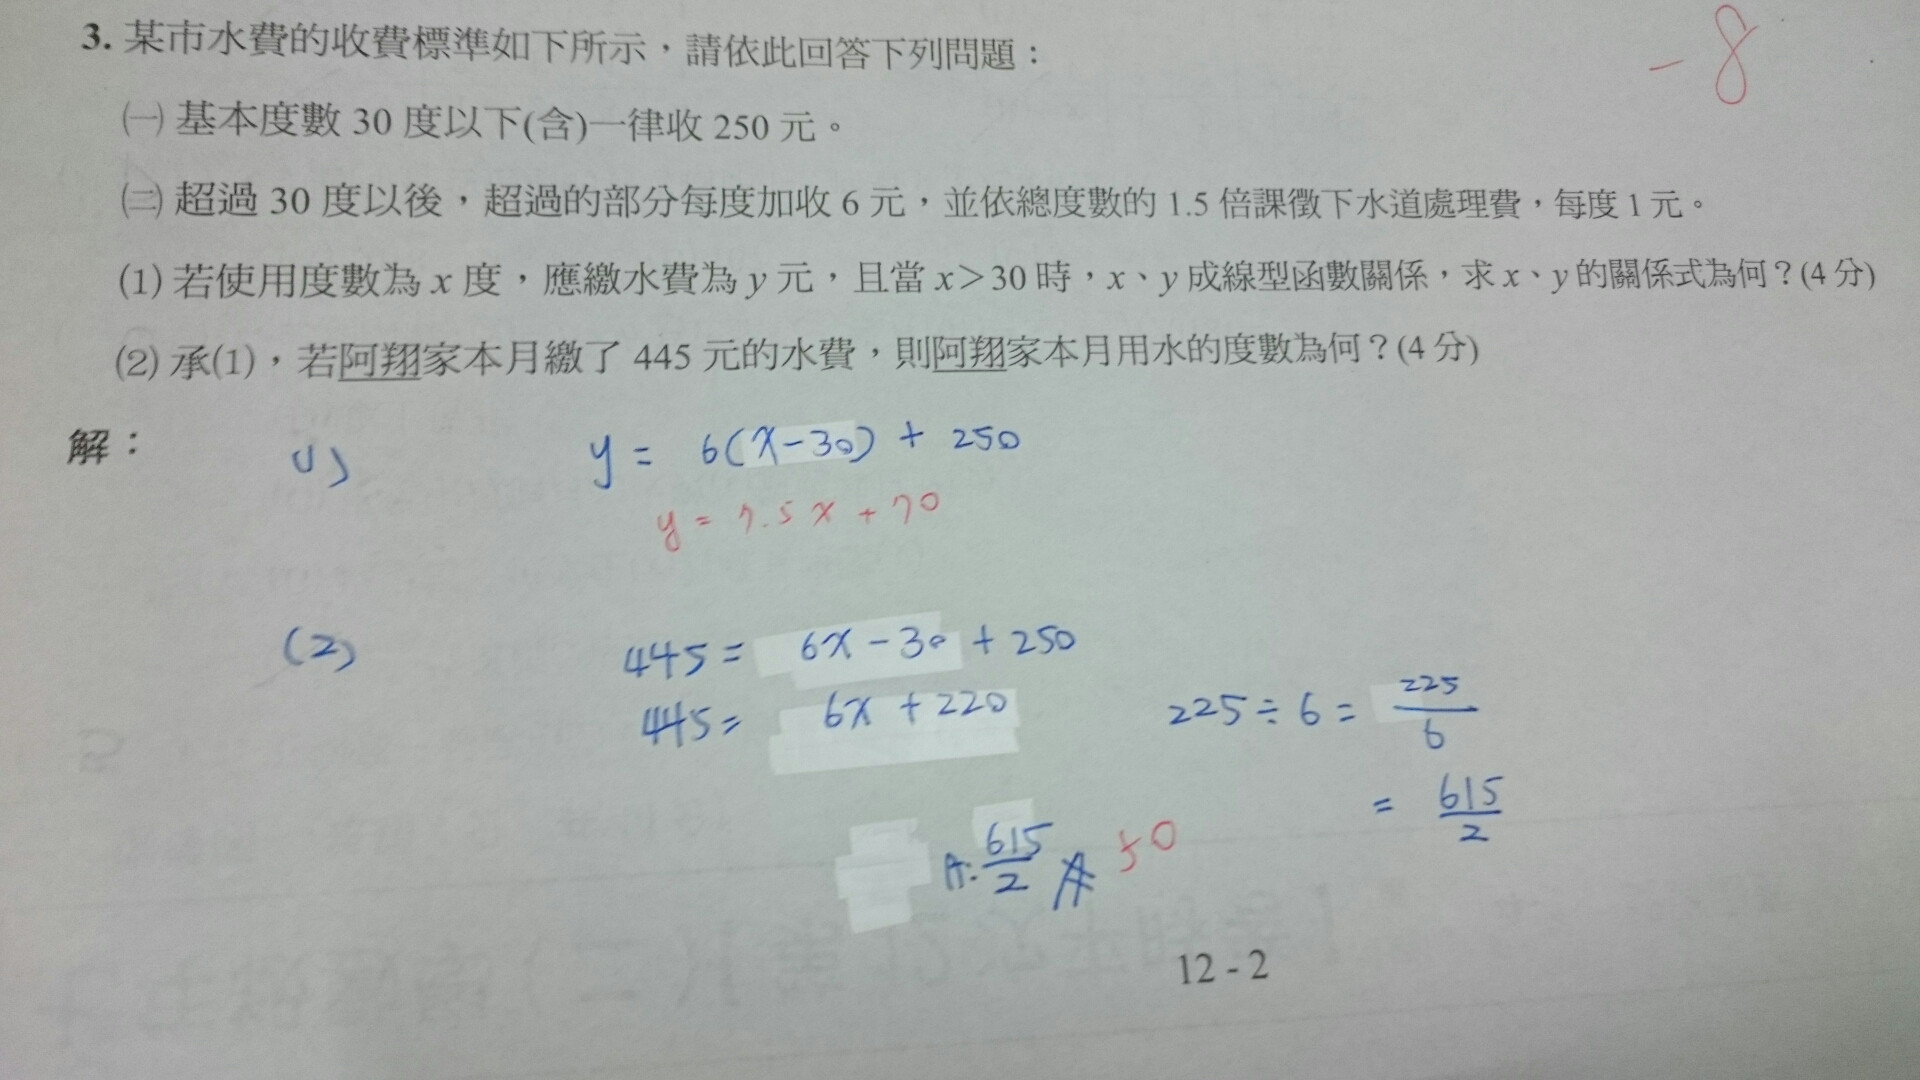 3. 某市水費的收費標準如下所示，請依此回答下列問題：
-8
㈠ 基本度數 30 度以下(含)一律收 250 元。
㈡ 超過 30 度以後，超過的部分每度加收 6 元，並依總度數的 1.5 倍課徵下水道處理費，每度 1 元。
(1) 若使用度數為 x 度，應繳水費為 y 元，且當 x＞30 時，x、y 成線型函數關係，求 x、y 的關係式為何？(4 分)
(2) 承(1)，若阿翔家本月繳了 445 元的水費，則阿翔家本月用水的度數為何？(4 分)
解：
(1) y = 6(x-30) + 250
y = 7.5x + 70
(2) 445 = 6x - 30 + 250
445 = 6x + 220
225 ÷ 6 = 225/6
= 615/2
A: 615/2
50
12 - 2